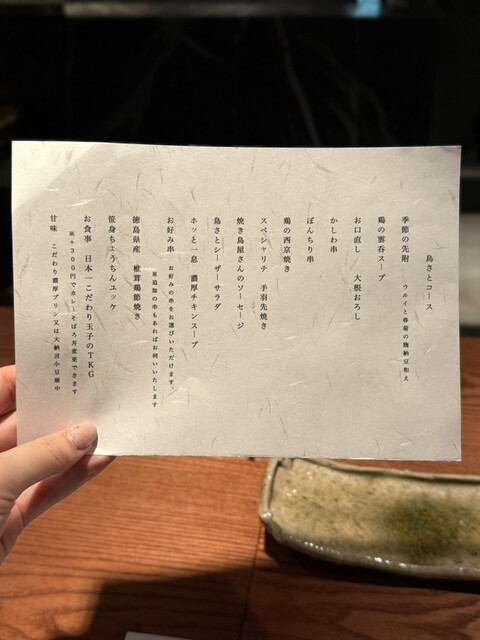 鳥さとコース
季節の先附　ウルイと春菊の麹納豆和え
鶏の雲呑スープ
お口直し　大根おろし
かしわ串
ぼんちり串
鶏の西京焼き
スペシャリテ　手羽先焼き
焼き鳥屋さんのソーセージ
鳥さとシーザーサラダ
ホッと一息　濃厚チキンスープ
お好み串　お好みの串をお選びいただけます。
※追加の串もあればお伺いいたします
徳島県産　椎茸鶏節焼き
笹身ちょうちんユッケ
お食事　日本一こだわり玉子のTKG
※+300円でカレーそぼろ丼変更できます
甘味　こだわり濃厚プリン又は大納言小豆最中